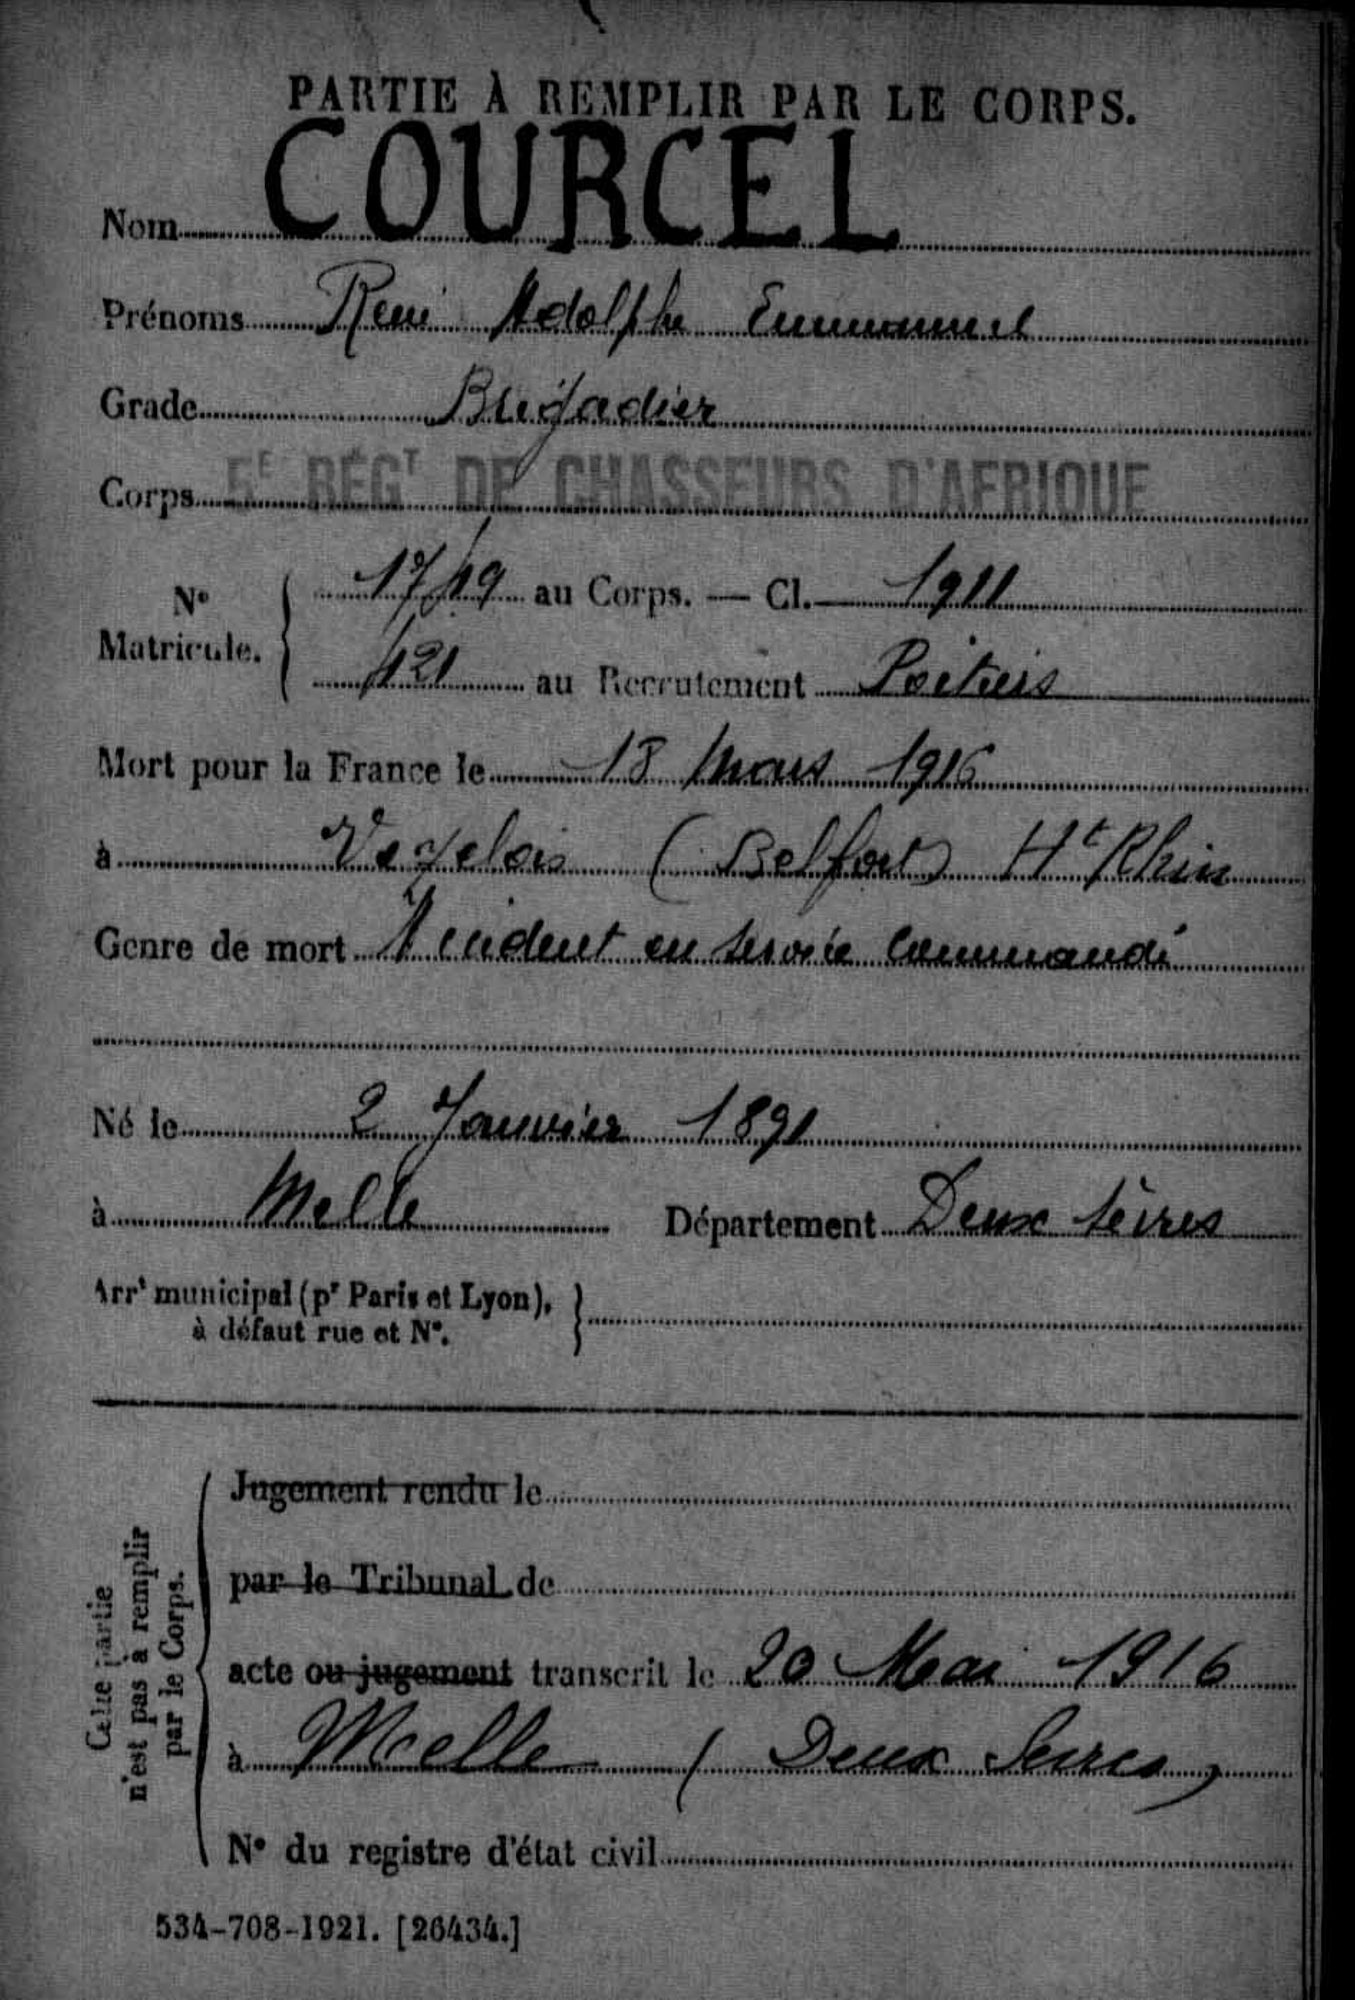 PARTIE À REMPLIR PAR LE CORPS.
Nom COURCEL
Prénoms René Adolphe Emmanuel
Grade Brigadier
Corps 5E RÉGT DE CHASSEURS D'AFRIQUE
No Matricule. 1719 au Corps. — Cl. 1911
421 au Recrutement Poitiers
Mort pour la France le 18 Mars 1916
à Vezelois (Belfort) Ht Rhin
Genre de mort Accident en service commandé
Né le 2 Janvier 1891
à Melle Département Deux Sèvres
Arrt municipal (pr Paris et Lyon),
à défaut rue et No.
Cette partie
n'est pas à remplir
par le Corps.
Jugement rendu le
par le Tribunal de
acte ou jugement transcrit le 20 Mai 1916
à Melle (Deux Sevres)
No du registre d'état civil
534-708-1921. [26434.]